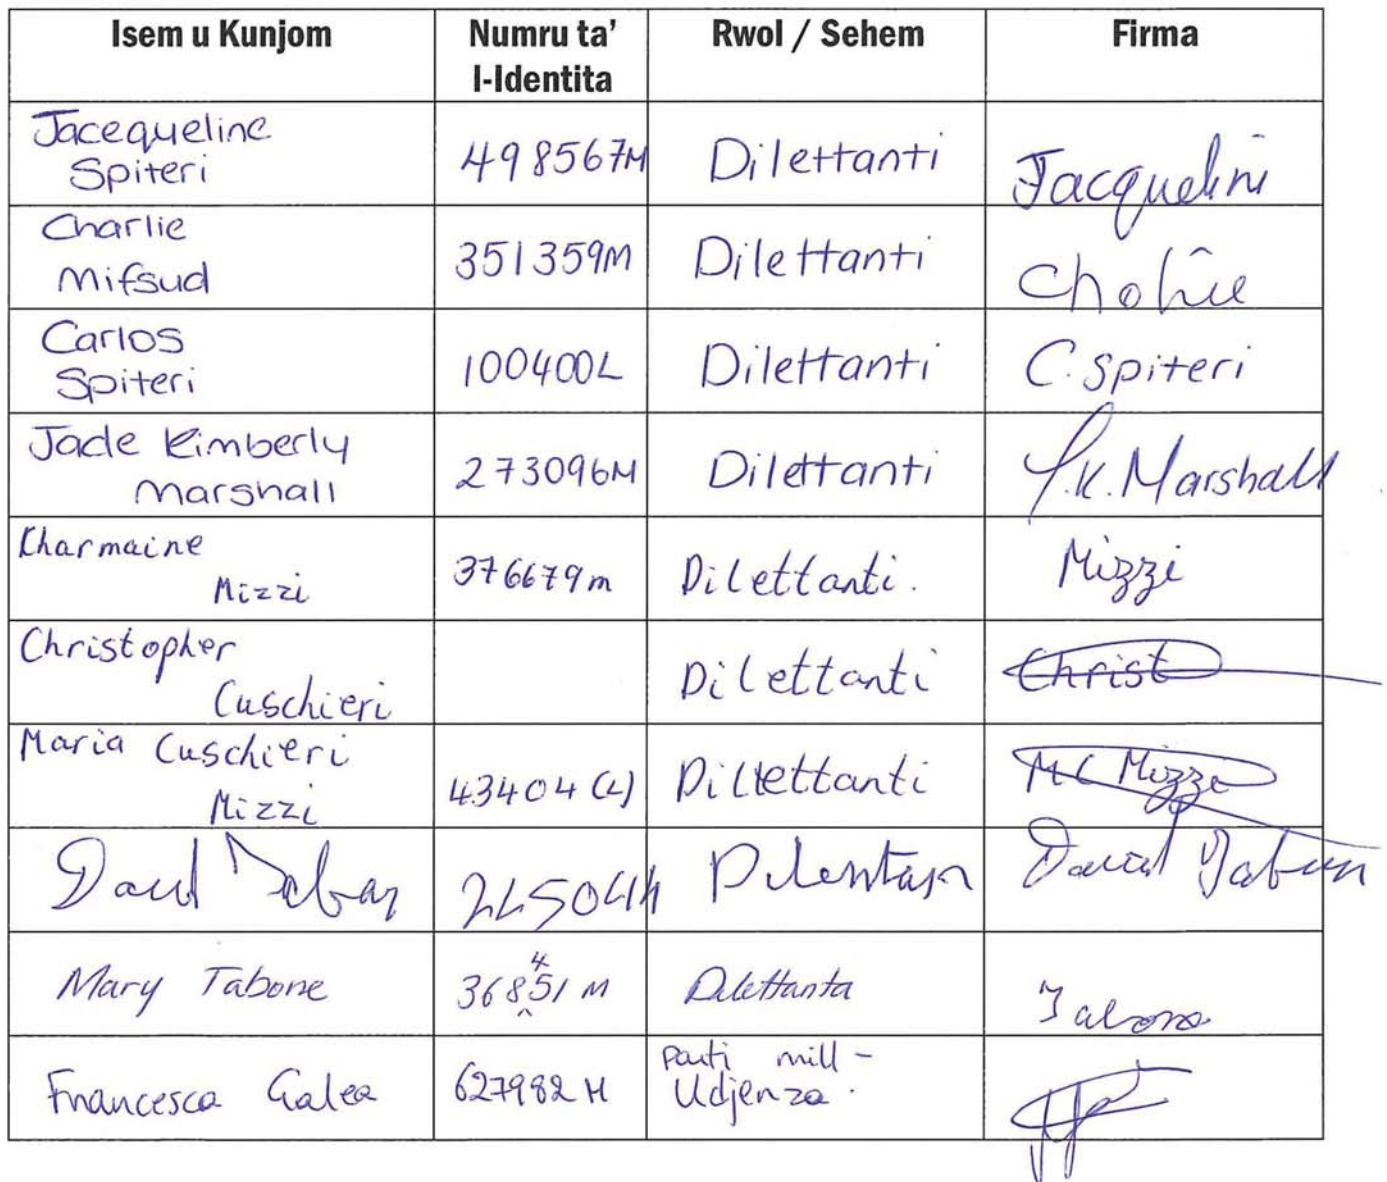 Isem u Kunjom Numru ta' Rwol / Sehem Firma
l-Identita
Jacequeline
Spiteri 498567M Dilettanti Jacquelini
Charlie
Mifsud 351359M Dilettanti
Carlos
Spiteri 100400L Dilettanti C. Spiteri
Jade Kimberly
Marshall 273096M Dilettanti J.K. Marshall
Charmaine
Mizzi 376679m Dilettanti. Mizzi
Christopher
Cuschieri Dilettanti Christ
Maria Cuschieri
Mizzi 43404 (L) Dilettanti MC Mizzi
David
Mary Tabone 368451 M Dilettanta Tabone
Francesca Galea 627982 M Parti mill-
Udjenza.